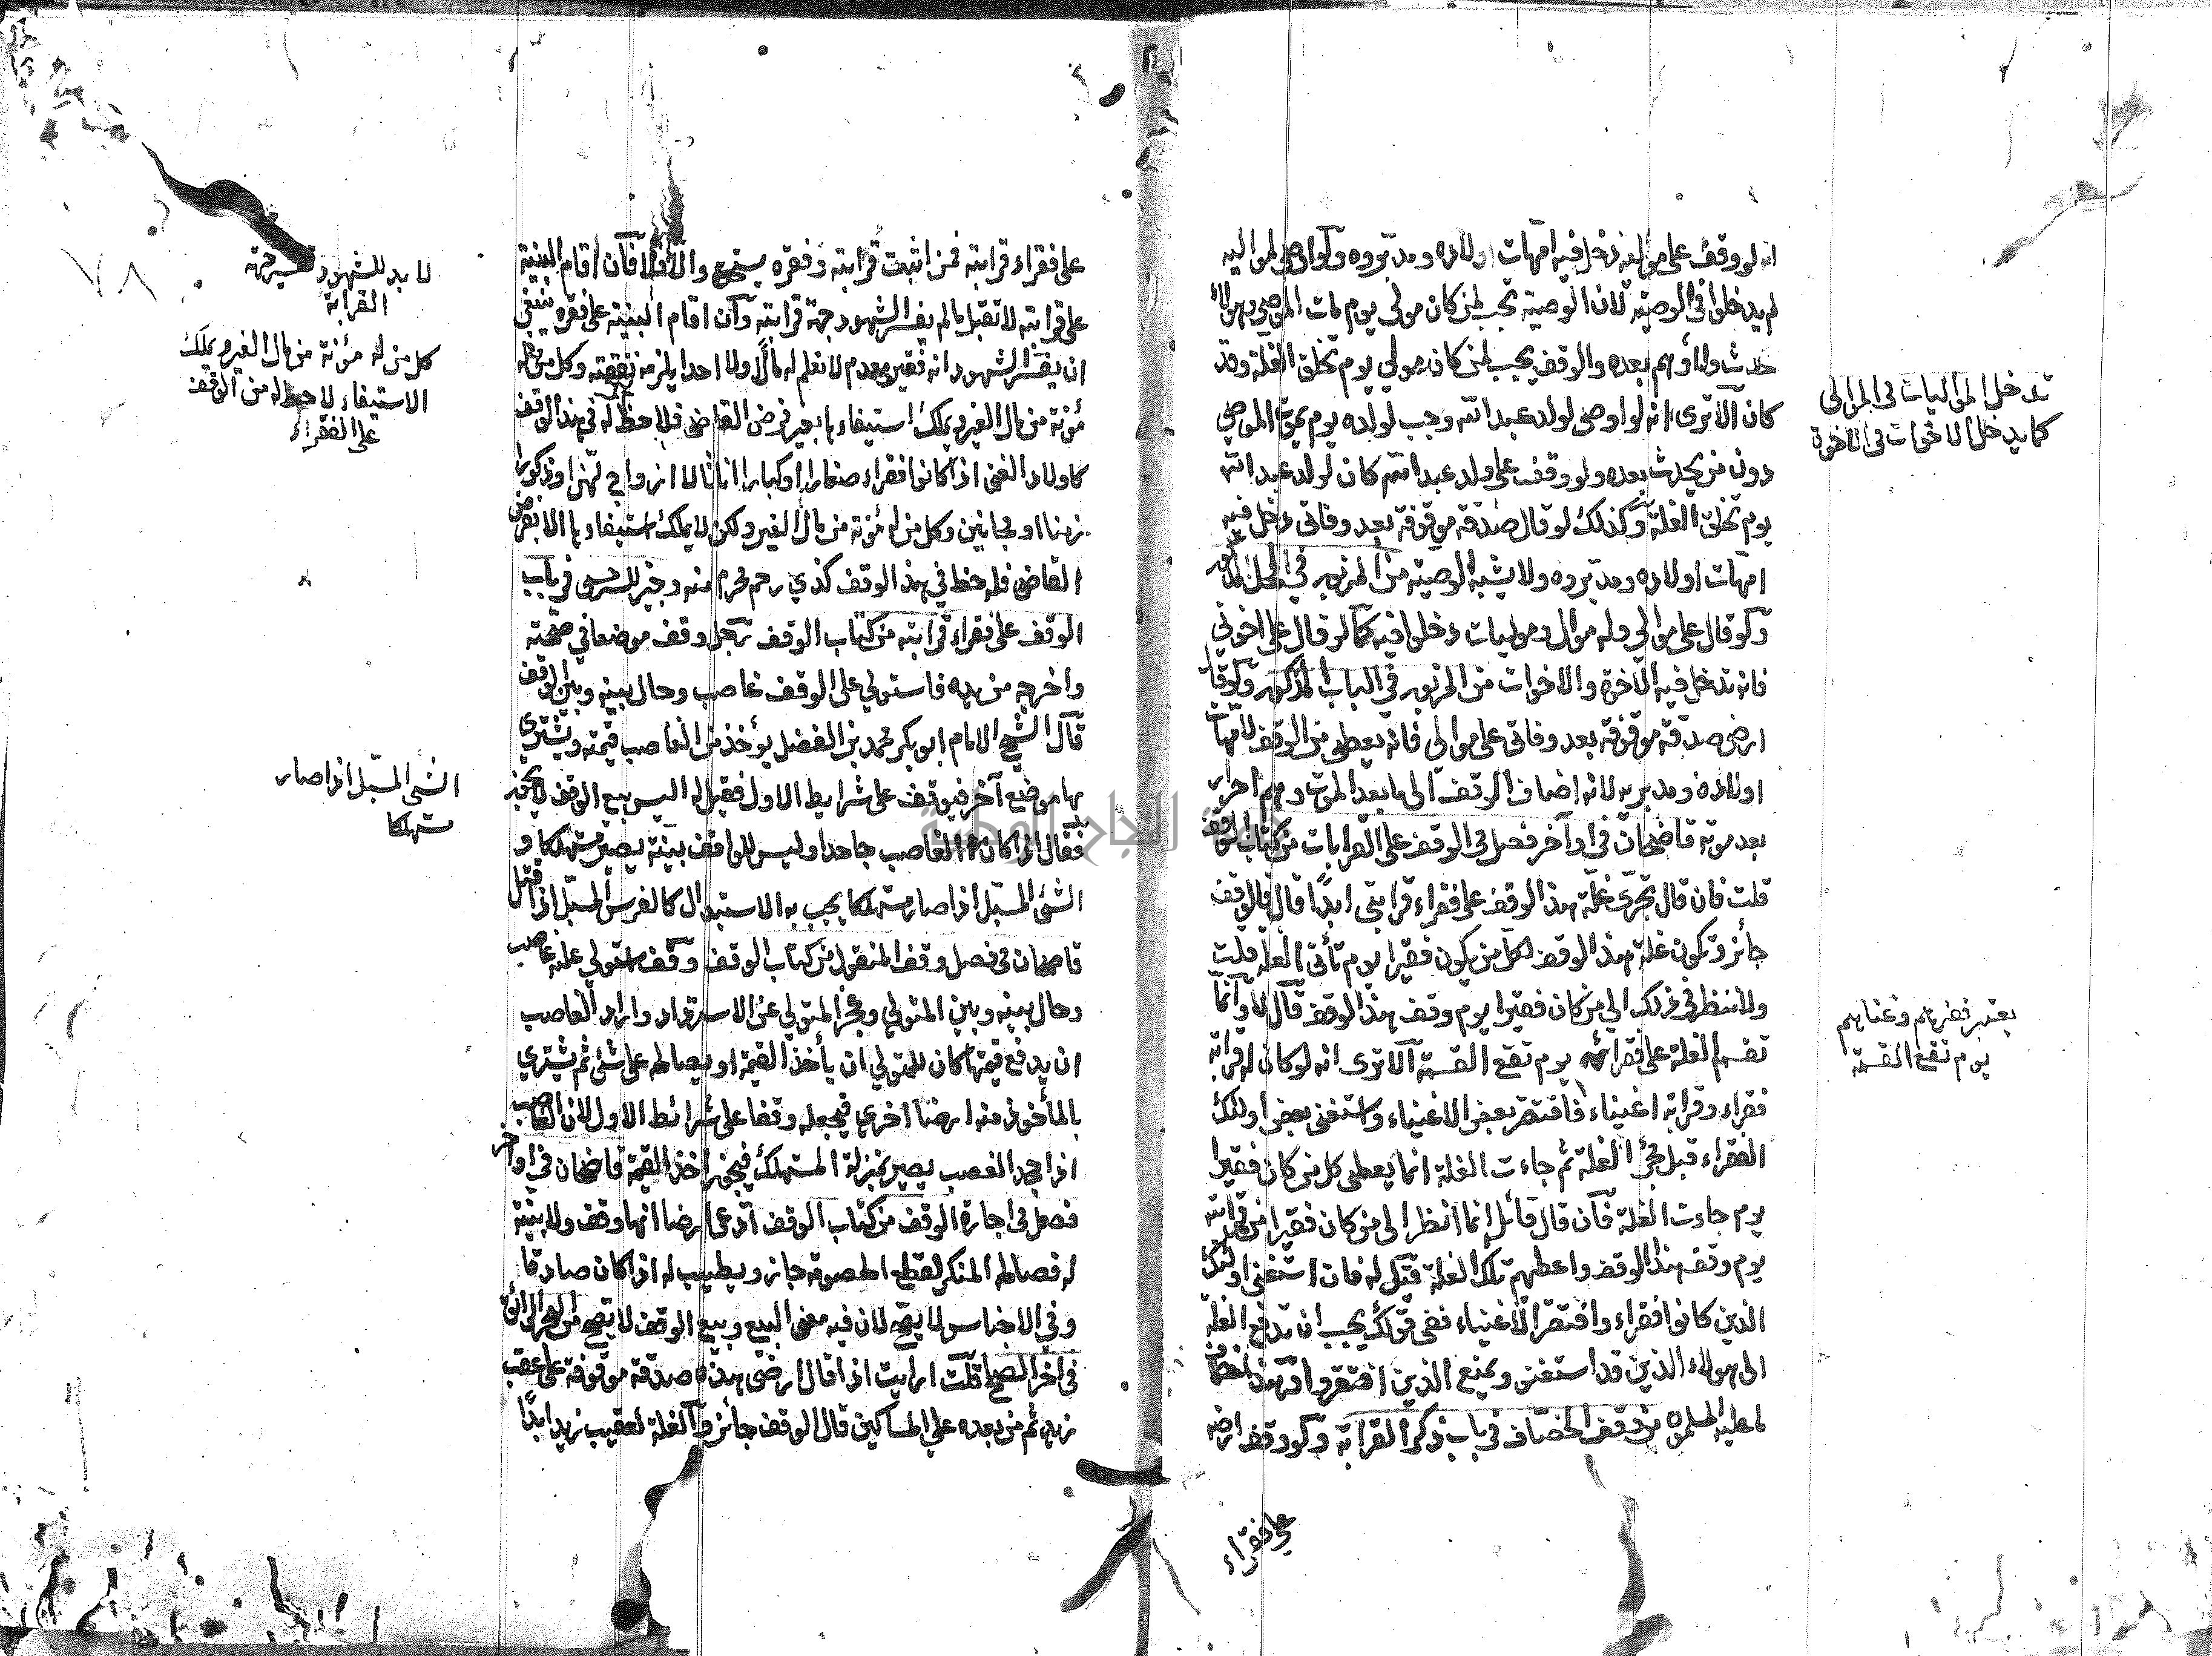 انه لو وقف على مواليه دخل فيه امهات اولاده ومدبروه ولو اوصى لمواليه
لم يدخلوا في الوصية لان الوصية تجب لمن كان مولى يوم مات الموصي وهؤلاء
حدث ولاؤهم بعده والوقف يجب لمن كان مولى يوم تخلق الغلة وقد
كان الا ترى انه لو اوصى لولد عبد الله وجب لولده يوم يموت الموصي
دون من يحدث بعده ولو وقف على ولد عبد الله كان لولد عبد الله
يوم تخلق الغلة وكذلك لو قال صدقة موقوفة بعد وفاتي دخل فيه
امهات اولاده ومدبروه ولا يشبه الوصية من المزبور في المحل
ولو قال على موالي وله موال وموليات دخلوا فيه كما لو قال على اخوتي
فانه تدخل فيه الاخوة والاخوات من المزبور في الباب المذكور ولو قال
ارضي صدقة موقوفة بعد وفاتي على موالي فانه يعطى من الوقف لامهات
اولاده ومدبريه لانه اضاف الوقف الى ما بعد الموت وهم احرار
بعد موته قاضيخان في اواخر فصل في الوقف على القرابات من كتاب الوقف
قلت فان قال تجرى غلة هذا الوقف على فقراء قرابتي ابدا قال فالوقف
جائز وتكون غلة هذا الوقف لكل من يكون فقيرا يوم تأتي الغلة قلت
ولا تنظر في ذلك الى من كان فقيرا يوم وقف هذا الوقف قال لا وانما
تقسم الغلة على فقرائه يوم تقع القسمة الا ترى انه لو كان له قرابة
فقراء وقرابة اغنياء فافتقر بعض الاغنياء واستغنى بعض اولئك
الفقراء قبل مجئ الغلة ثم جاءت الغلة انما يعطى كل من كان فقيرا
يوم جاءت الغلة فان قال قائل انما انظر الى من كان فقيرا من قرابته
يوم وقف هذا الوقف واعطيهم تلك الغلة قيل له فان استغنى اولئك
الذين كانوا فقراء وافتقر الاغنياء ففي قولك يجب ان تدفع الغلة
الى هؤلاء الذين قد استغنوا ويمنع الذين افتقروا فهذا
لما عليه المسلمون من وقف الخصاف في باب ذكر القرابة ولو وقف ارضه
على فقراء
تدخل الموليات في الموالي
كما يدخل الاخوات في الاخوة
يعتبر فقرهم وغناهم
يوم تقع القسمة
على فقراء قرابته فمن اثبت قرابته وفقره يستحق والا فلا فان اقام البينة
على قرابته لا تقبل ما لم يفسر الشهود جهة قرابته وان اقام البينة على فقره ينبغي
ان يفسر الشهود انه فقير معدم لا نعلم له مالا ولا احدا يلزمه نفقته وكل من له
مؤنة من مال الغير ويملك استيفاءها بغير فرض القاضي فلا حظ له في هذا الوقف
كاولاد الغني اذا كانوا فقراء صغارا او كبارا اناثا لا ازواج لهن او ذكورا
زمنا او مجانين وكل من له مؤنة من مال الغير ولكن لا يملك استيفاءها الا بفرض
القاضي فله حظ في هذا الوقف كذي رحم محرم منه وجيز للسرخسي في باب
الوقف على فقراء قرابته من كتاب الوقف رجل وقف موضعا في صحته
واخرجه من يده فاستولى على الوقف غاصب وحال بينه وبين الوقف
قال الشيخ الامام ابو بكر محمد بن الفضل يؤخذ من الغاصب قيمته ويشترى
بها موضع آخر فيوقف على شرايط الاول فقيل له اليس بيع الوقف لا يجوز
فقال اذا كان الغاصب جاحدا وليس للواقف بينة يصير مستهلكا و
الشئ المسبل اذا صار مستهلكا يجب به الاستبدال كالفرس المسبل اذا قتل
قاضيخان في فصل وقف المنقول من كتاب الوقف وقف استولى عليه غاصب
وحال بينه وبين المتولي وعجز المتولي عن الاسترداد واراد الغاصب
ان يدفع قيمتها كان للمتولي ان يأخذ القيمة او يصالحه على شئ ثم يشتري
بالمأخوذ منه ارضا اخرى فيجعله وقفا على شرائط الاول لان الغاصب
اذا جحد الغصب يصير بمنزلة المستهلك فيجوز اخذ القيمة قاضيخان في اواخر
فصل في اجارة الوقف من كتاب الوقف ادعى ارضا انها وقف ولا بينة
له فصالحه المنكر لقطع الخصومة جاز ويطيب له اذا كان صادقا
وفي الاجناس لا يصح لان فيه معنى البيع وبيع الوقف لا يصح من البحر الرائق
في اخر الصلح قلت ارايت اذا قال ارضي هذه صدقة موقوفة على عقب
زيد ثم من بعده على المساكين قال الوقف جائز والغلة لعقب زيد ابدا
٧٨
لا بد للشهود تفسير جهة
القرابة
كل من له مؤنة من مال الغير ويملك
الاستيفاء لا حظ له من الوقف
على الفقراء
الشئ المسبل اذا صار
مستهلكا